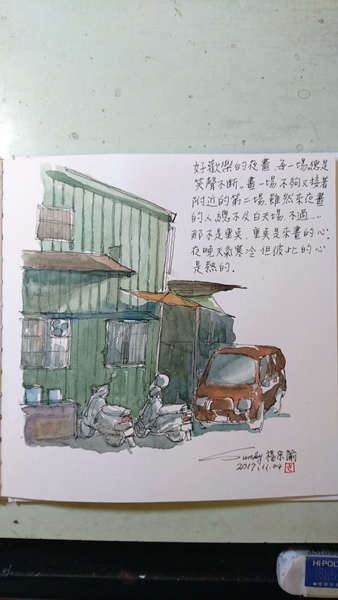 好歡樂的夜畫.每一場總是
笑聲不斷。畫一場不夠又接著
附近的第二場.雖然來夜畫
的人總不及白天場.不過...
那不是重奌.重奌是來畫的心.
夜晚天氣寒冷但彼此的心
是熱的.
Sunday 楊
2017.11.04
HI-POL